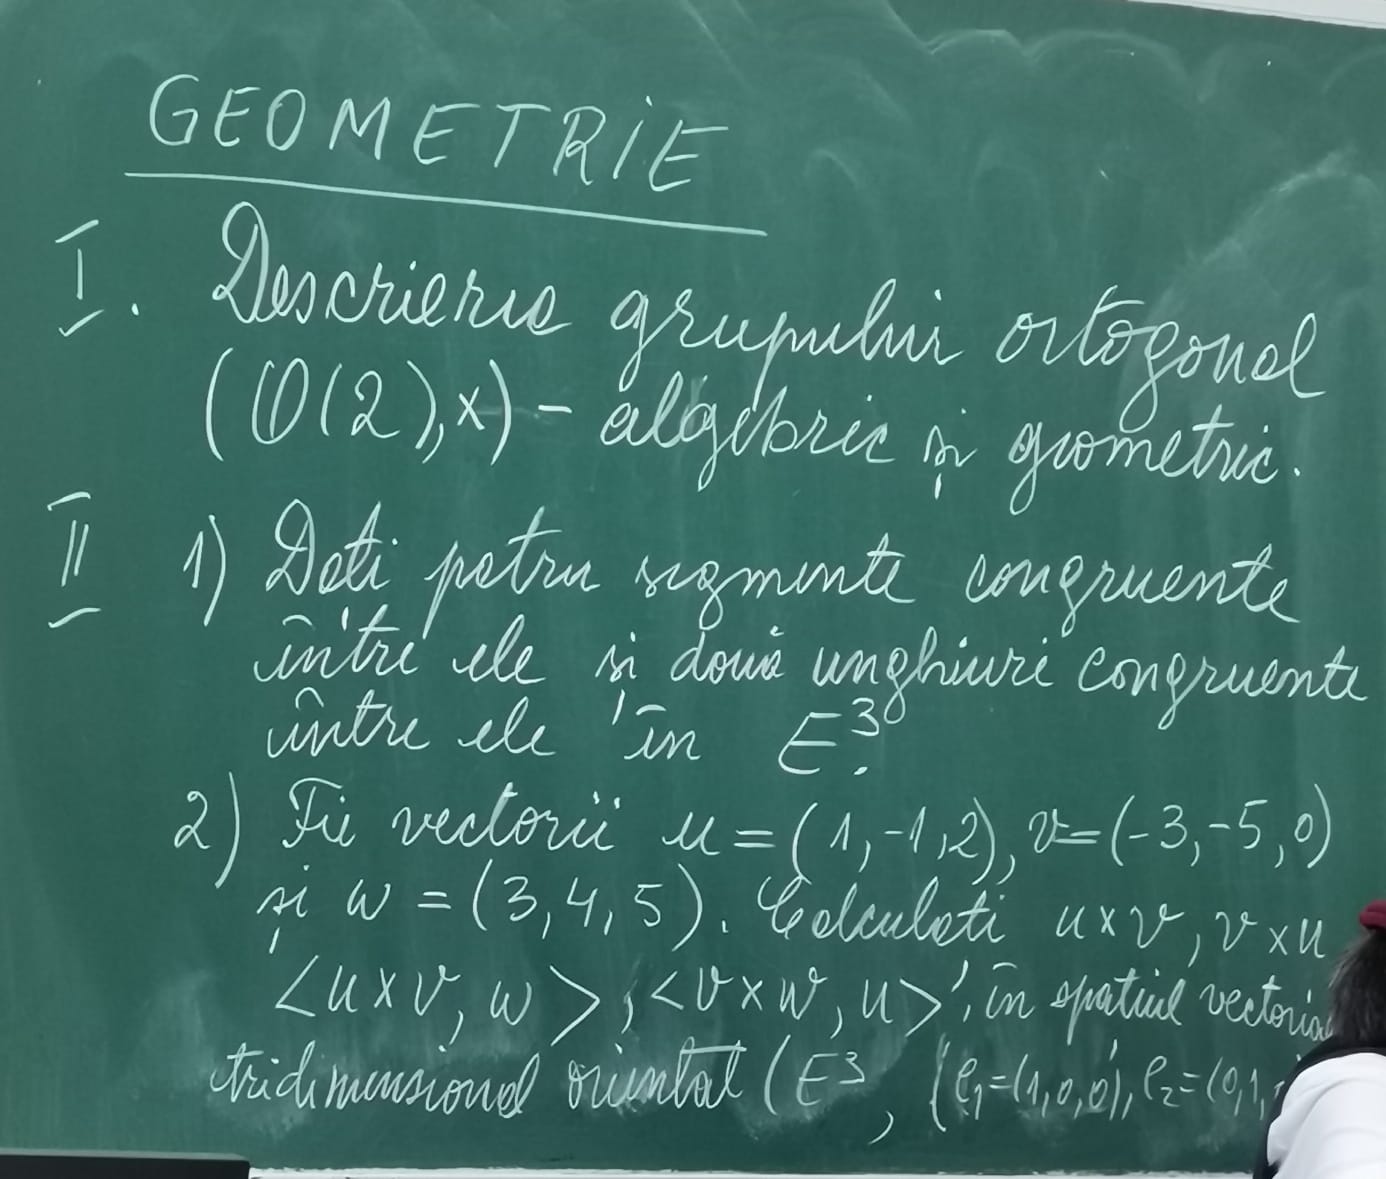 GEOMETRIE
I. Descrierea grupului ortogonal
(O(2),×) - algebric și geometric.
II 1) Dați patru segmente congruente
între ele și două unghiuri congruente
între ele în E³.
2) Fie vectorii u = (1,-1,2), v=(-3,-5,0)
și w = (3,4,5). Calculați u×v, v×u
<u×v, w>, <v×w, u>, în spațiul vectorial
tridimensional orientat (E³, {e₁=(1,0,0), e₂=(0,1,